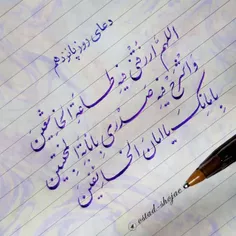 دعای روز پانزدهم
اللهم ارزقنی فیه طاعة الخاشعین
واشرح فیه صدری بانابة المخبتین
بامانک یا امان الخائفین
@ostad-shojae